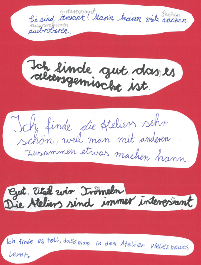 Sie sind
kann
Sachen
ausprobieren.
Ich finde gut das es
altersgemischt ist.
Ich finde die Ateliers sehr
schön, weil man mit anderen
zusammen etwas machen kann
Gut. Und wir Trömeln
Die Ateliers sind immer interessant
Ich finde es toll, dass man in den Atelier neues
lernt.